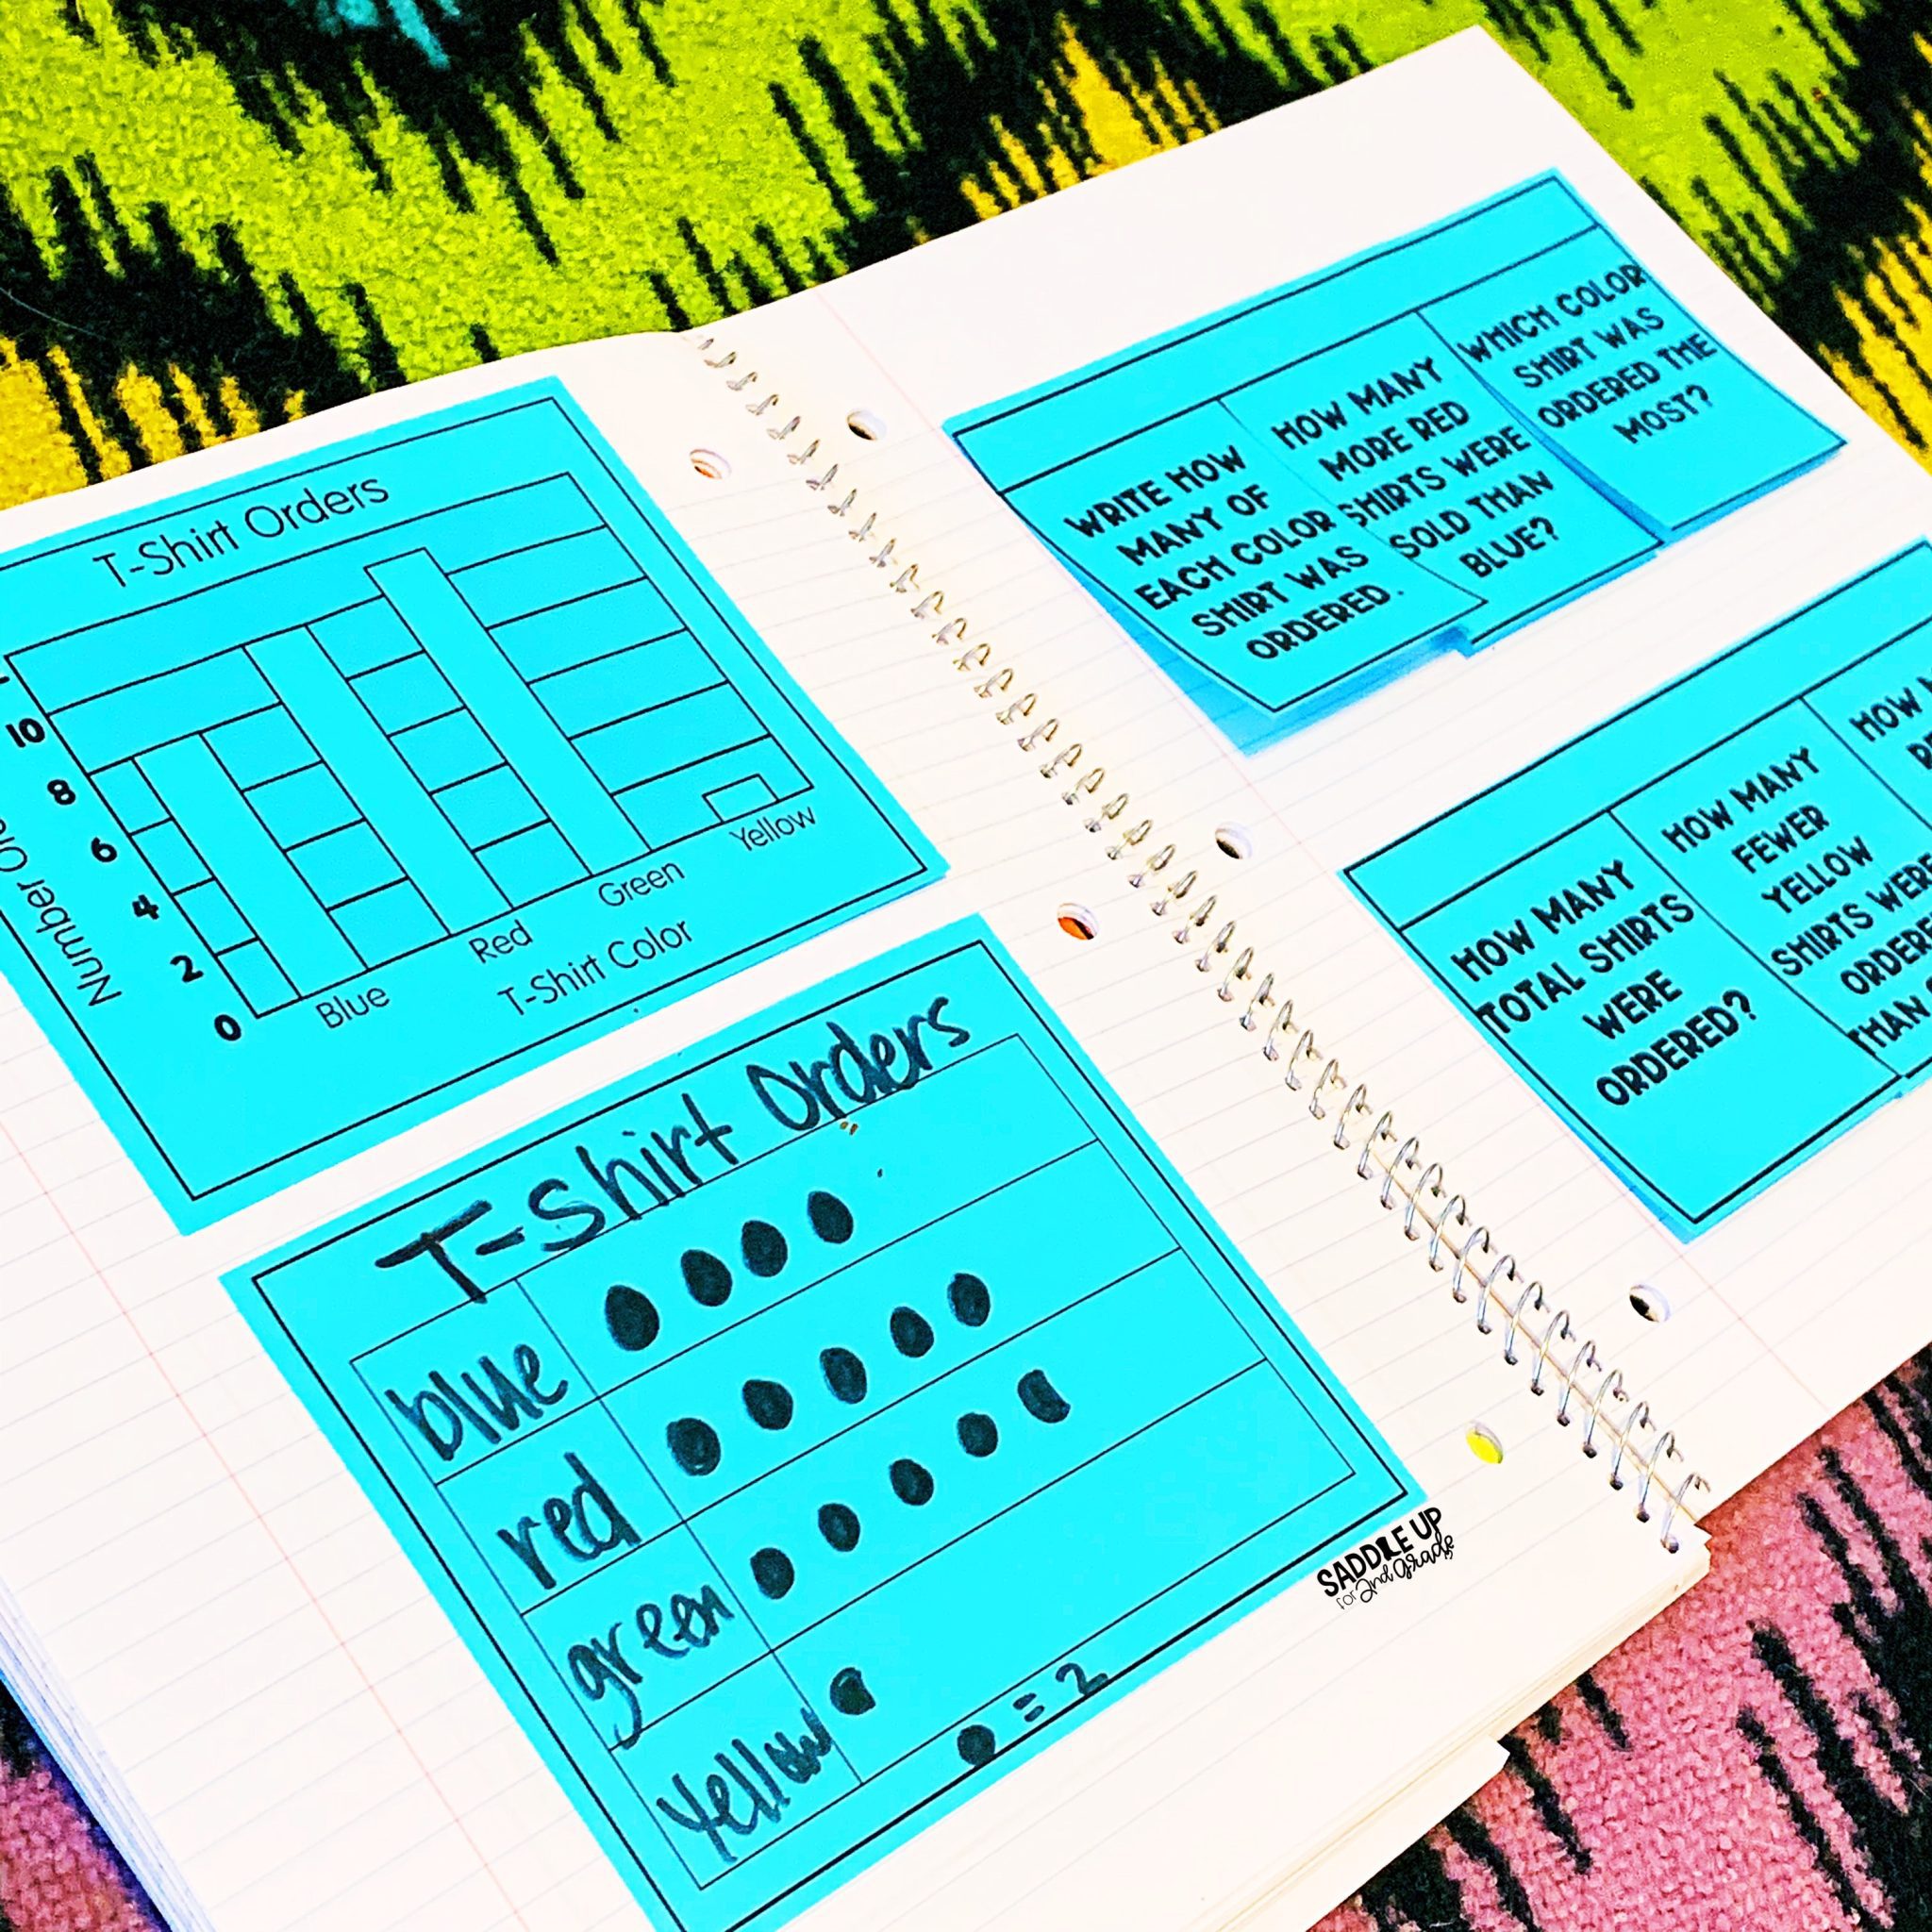 T-Shirt Orders
10
8
6
4
2
0
Blue
Red
Green
Yellow
Number
T-Shirt Color
T-shirt Orders
blue
red
green
Yellow
= 2
WRITE HOW
MANY OF
EACH COLOR
SHIRT WAS
ORDERED.
HOW MANY
MORE RED
SHIRTS WERE
SOLD THAN
BLUE?
WHICH COLOR
SHIRT WAS
ORDERED THE
MOST?
HOW MANY
TOTAL SHIRTS
WERE
ORDERED?
HOW MANY
FEWER
YELLOW
SHIRTS WERE
THAN
HOW
SADDLE UP
for 2nd Grade